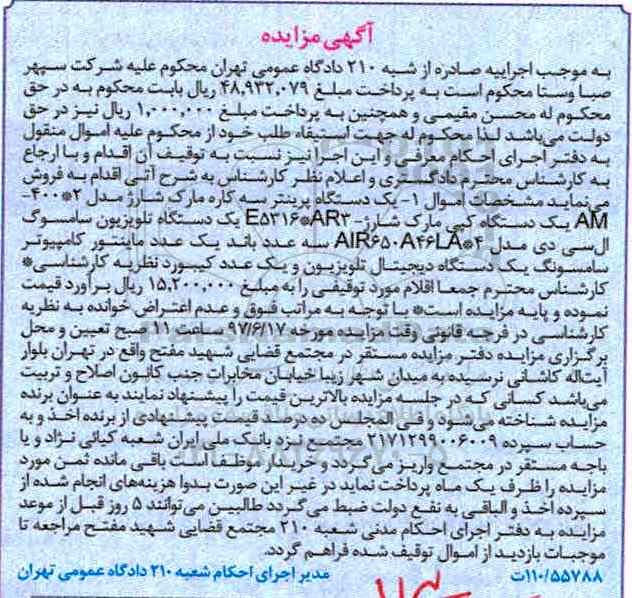 آگهی مزایده
به موجب اجراییه صادره از شبه ۲۱۰ دادگاه عمومی تهران محکوم علیه شرکت سپهر
صبا وستا محکوم است به پرداخت مبلغ ۴۸,۹۳۲,۰۷۹ ریال بابت محکوم به در حق
محکوم له محسن مقیمی و همچنین به پرداخت مبلغ ۱,۰۰۰,۰۰۰ ریال نیز در حق
دولت می‌باشد لذا محکوم له جهت استیفاء طلب خود از محکوم علیه اموال منقول
به دفتر اجرای احکام معرفی و این اجرا نیز نسبت به توقیف آن اقدام و با ارجاع
به کارشناس محترم دادگستری و اعلام نظر کارشناس به شرح آتی اقدام به فروش
می‌نماید مشخصات اموال ۱- یک دستگاه پرینتر سه کاره مارک شارژ مدل ۲*۴۰۰-
AM یک دستگاه کپی مارک شارژ- E۵۳۱۶*AR۳ یک دستگاه تلویزیون سامسوگ
ال‌سی دی مدل ۴*AIR۶۵۰A۴۶LA سه عدد باند یک عدد ماینتور کامپیوتر
سامسونگ یک دستگاه دیجیتال تلویزیون و یک عدد کیبورد نظریه کارشناسی*
کارشناس محترم جمعا اقلام مورد توقیفی را به مبلغ ۱۵,۲۰۰,۰۰۰ ریال برآورد قیمت
نموده و پایه مزایده است* با توجه به مراتب فوق و عدم اعتراض خوانده به نظریه
کارشناسی در فرجه قانونی وقت مزایده مورخه ۹۷/۶/۱۷ ساعت ۱۱ صبح تعیین و محل
برگزاری مزایده دفتر مزایده مستقر در مجتمع قضایی شهید مفتح واقع در تهران بلوار
آیت‌اله کاشانی نرسیده به میدان شهر زیبا خیابان مخابرات جنب کانون اصلاح و تربیت
می‌باشد کسانی که در جلسه مزایده بالاترین قیمت را پیشنهاد نمایند به عنوان برنده
مزایده شناخته می‌شود و فی المجلس ده درصد قیمت پیشنهادی از برنده اخذ و به
حساب سپرده ۲۱۷۱۲۹۹۰۰۶۰۰۹ مجتمع نزد بانک ملی ایران شعبه کیائی نژاد و یا
باجه مستقر در مجتمع واریز می‌گردد و خریدار موظف است باقی مانده ثمن مورد
مزایده را ظرف یک ماه پرداخت نماید در غیر این صورت بدوا هزینه‌های انجام شده از
سپرده اخذ و الباقی به نفع دولت ضبط می‌گردد طالبین می‌توانند ۵ روز قبل از موعد
مزایده به دفتر اجرای احکام مدنی شعبه ۲۱۰ مجتمع قضایی شهید مفتح مراجعه تا
موجبات بازدید از اموال توقیف شده فراهم گردد.
۱۱۰/۵۵۷۸۸ت مدیر اجرای احکام شعبه ۲۱۰ دادگاه عمومی تهران